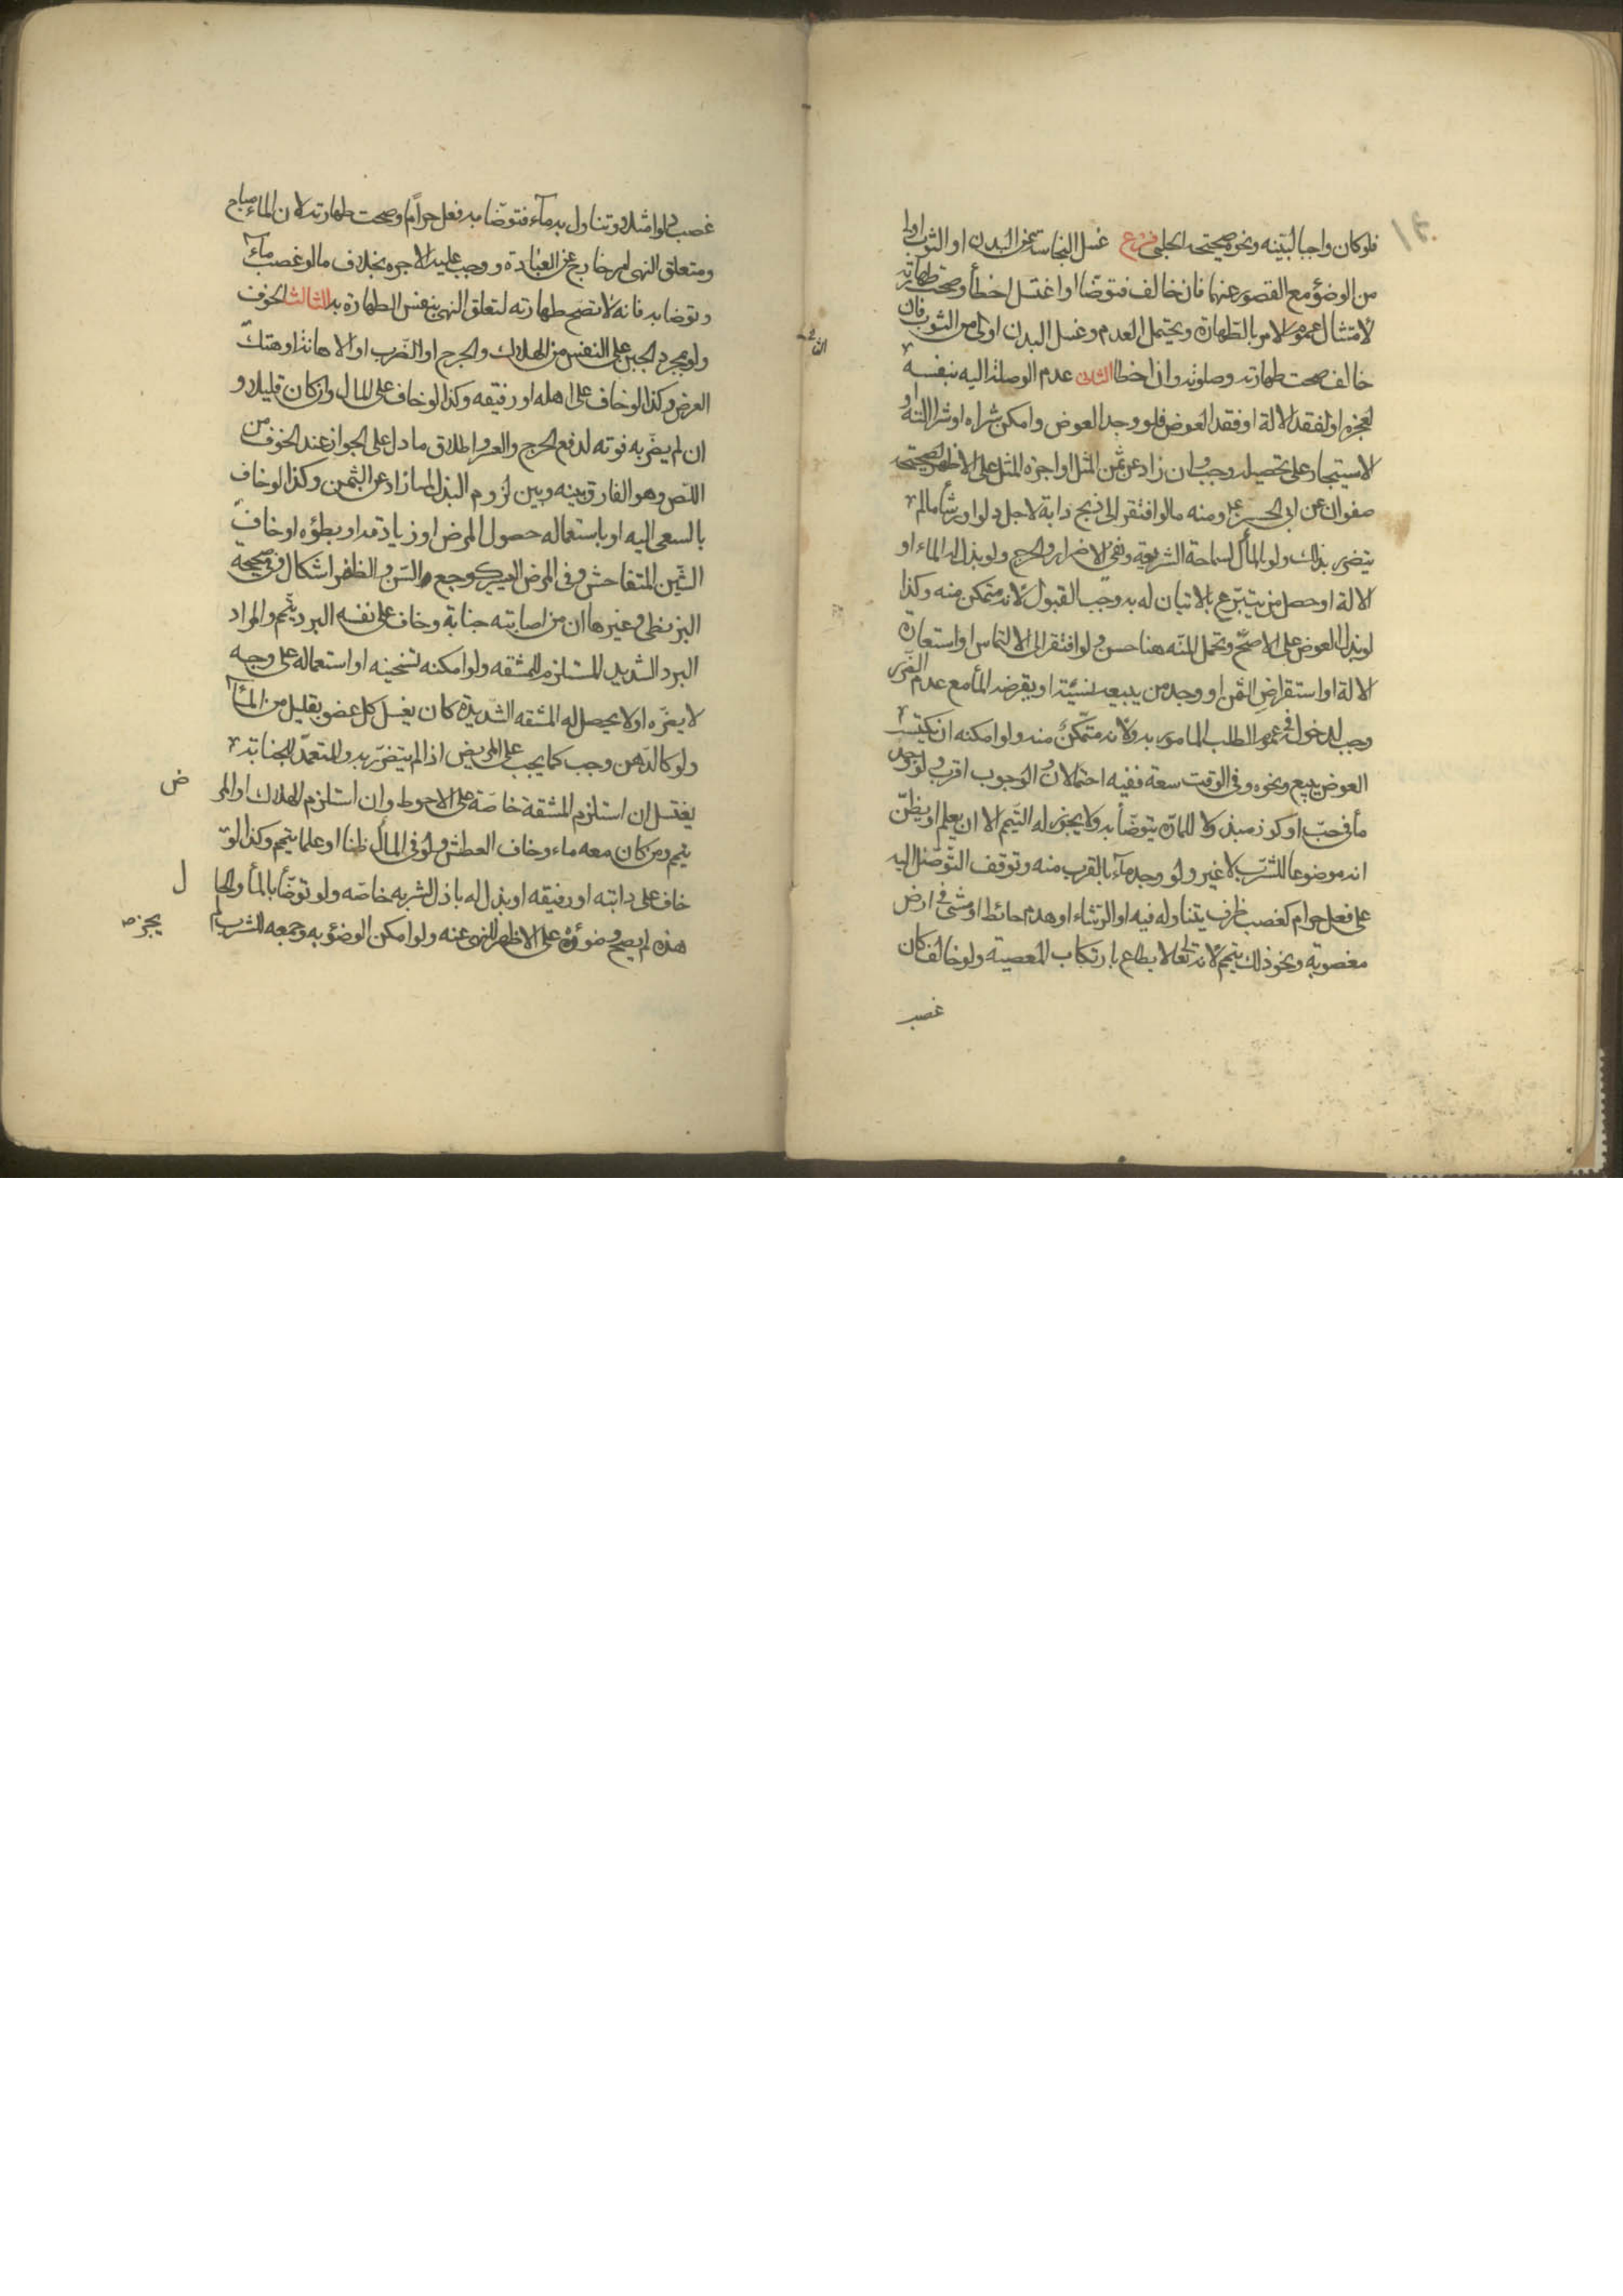 فلو كان واجبا لبينه ونحوه صحيحة الحلبي فرع غسل النجاسة عن البدن او الثوب اولى
من الوضوء مع القصور عنهما فان خالف فتوضا او اغتسل اخطأ وصحت طهارته
لامتثال عموم الامر بالطهارة ويحتمل العدم وغسل البدن اولى من الثوب فان
خالف صحت طهارته وصلوته وان اخطا الثاني عدم الوصلة اليه بنفسه
لعجزه او لفقد الالة او فقد العوض فلو وجد العوض وامكن شراه او شرا الالة او
الاستيجار على تحصيله وجب وان زاد عن ثمن المثل او اجرة المثل على الاظهر لصحيحة
صفوان عن ابي الحسن ع ومنه ما لو افتقر الى ذبح دابة لاجل دلو او رشأ ما لم
يتضرر بذلك ولو بالمأل لسماحة الشريعة ونفي الاضرار والحرج ولو بذل له الماء او
الالة او حصل من يتبرع بالاتيان له به وجب القبول لانه متمكن منه وكذا
لو بذل العوض على الاصح وتحمل المنه هنا حسن ولو افتقر الى الالتماس او استعارة
الالة او استقراض الثمن او وجد من يبيعه نسيئة او يقرضه المأ مع عدم الضرر
وجب لدخوله في عموم الطلب المامور به ولانه متمكن منه ولو امكنه ان يكتسب
العوض ببيع ونحوه وفي الوقت سعة ففيه احتمالان والوجوب اقرب ولو وجد
مأ في حب او كوز مبذولا للمارة يتوضأ به ولا يجوز له التيمم الا ان يعلم او يظن
انه موضوعا للشرب لا غير ولو وجد مآء بالقرب منه وتوقف التوصل اليه
على فعل حرام كغصب ظرف يتناوله فيه او الرشاء او هدم حائط او مشى في ارض
مغصوبة ونحو ذلك يتيمم لانه تعالى لا يطاع بارتكاب المعصية ولو خالف كان
غصب
غصب دلوا مثلا وتناول به مآء فتوضا به فعل حراما وصحت طهارته لان الماء مباح
ومتعلق النهي امر خارج عن العبادة ووجب عليه الاجره بخلاف ما لو غصب مآء
وتوضا به فانه لا تصح طهارته لتعلق النهي بنفس الطهارة به الثالث الخوف
ولو بمجرد الجبن على النفس من الهلاك والجرح او الضرب او الاهانة او هتك
العرض وكذا لو خاف على اهله او رفيقه وكذا لو خاف على المال وان كان قليلا و
ان لم يضر به فوته لدفع الحرج والعسر واطلاق ما دل على الجواز عند الخوف من
اللص وهو الفارق بينه وبين لزوم البذل لما زاد عن الثمن وكذا لو خاف
بالسعي اليه او باستعماله حصول المرض او زيادته او بطؤه او خاف
الشين المتفاحش وفي المرض اليسير كوجع السن والظفر اشكال وفي صحيحة
البزنطي وغيرها ان من اصابته جنابة وخاف على نفسه البرد يتيمم والمراد
البرد الشديد المستلزم للمشقه ولو امكنه تسخينه او استعماله على وجه
لا يضره او لا يحصل له المشقه الشديدة كان يغسل كل عضو بقليل من المأ
ولو كالدهن وجب كما يجب على المريض اذا لم يتضرر به والمتعمد للجنابة
يغتسل ان استلزم المشقة خاصة على الاحوط وان استلزم الهلاك او المر
ض
يتيمم ومن كان معه ماء وخاف العطش ولو في المأل ظنا او علما يتيمم وكذا لو
خاف على دابته او رفيقه او بذل له باذل لشربه خاصه ولو توضأ بالمأ والحا
ل
هذه لم يصح وضوئه على الاظهر للنهي عنه ولو امكن الوضوء به وجمعه للشرب لم
يجزه